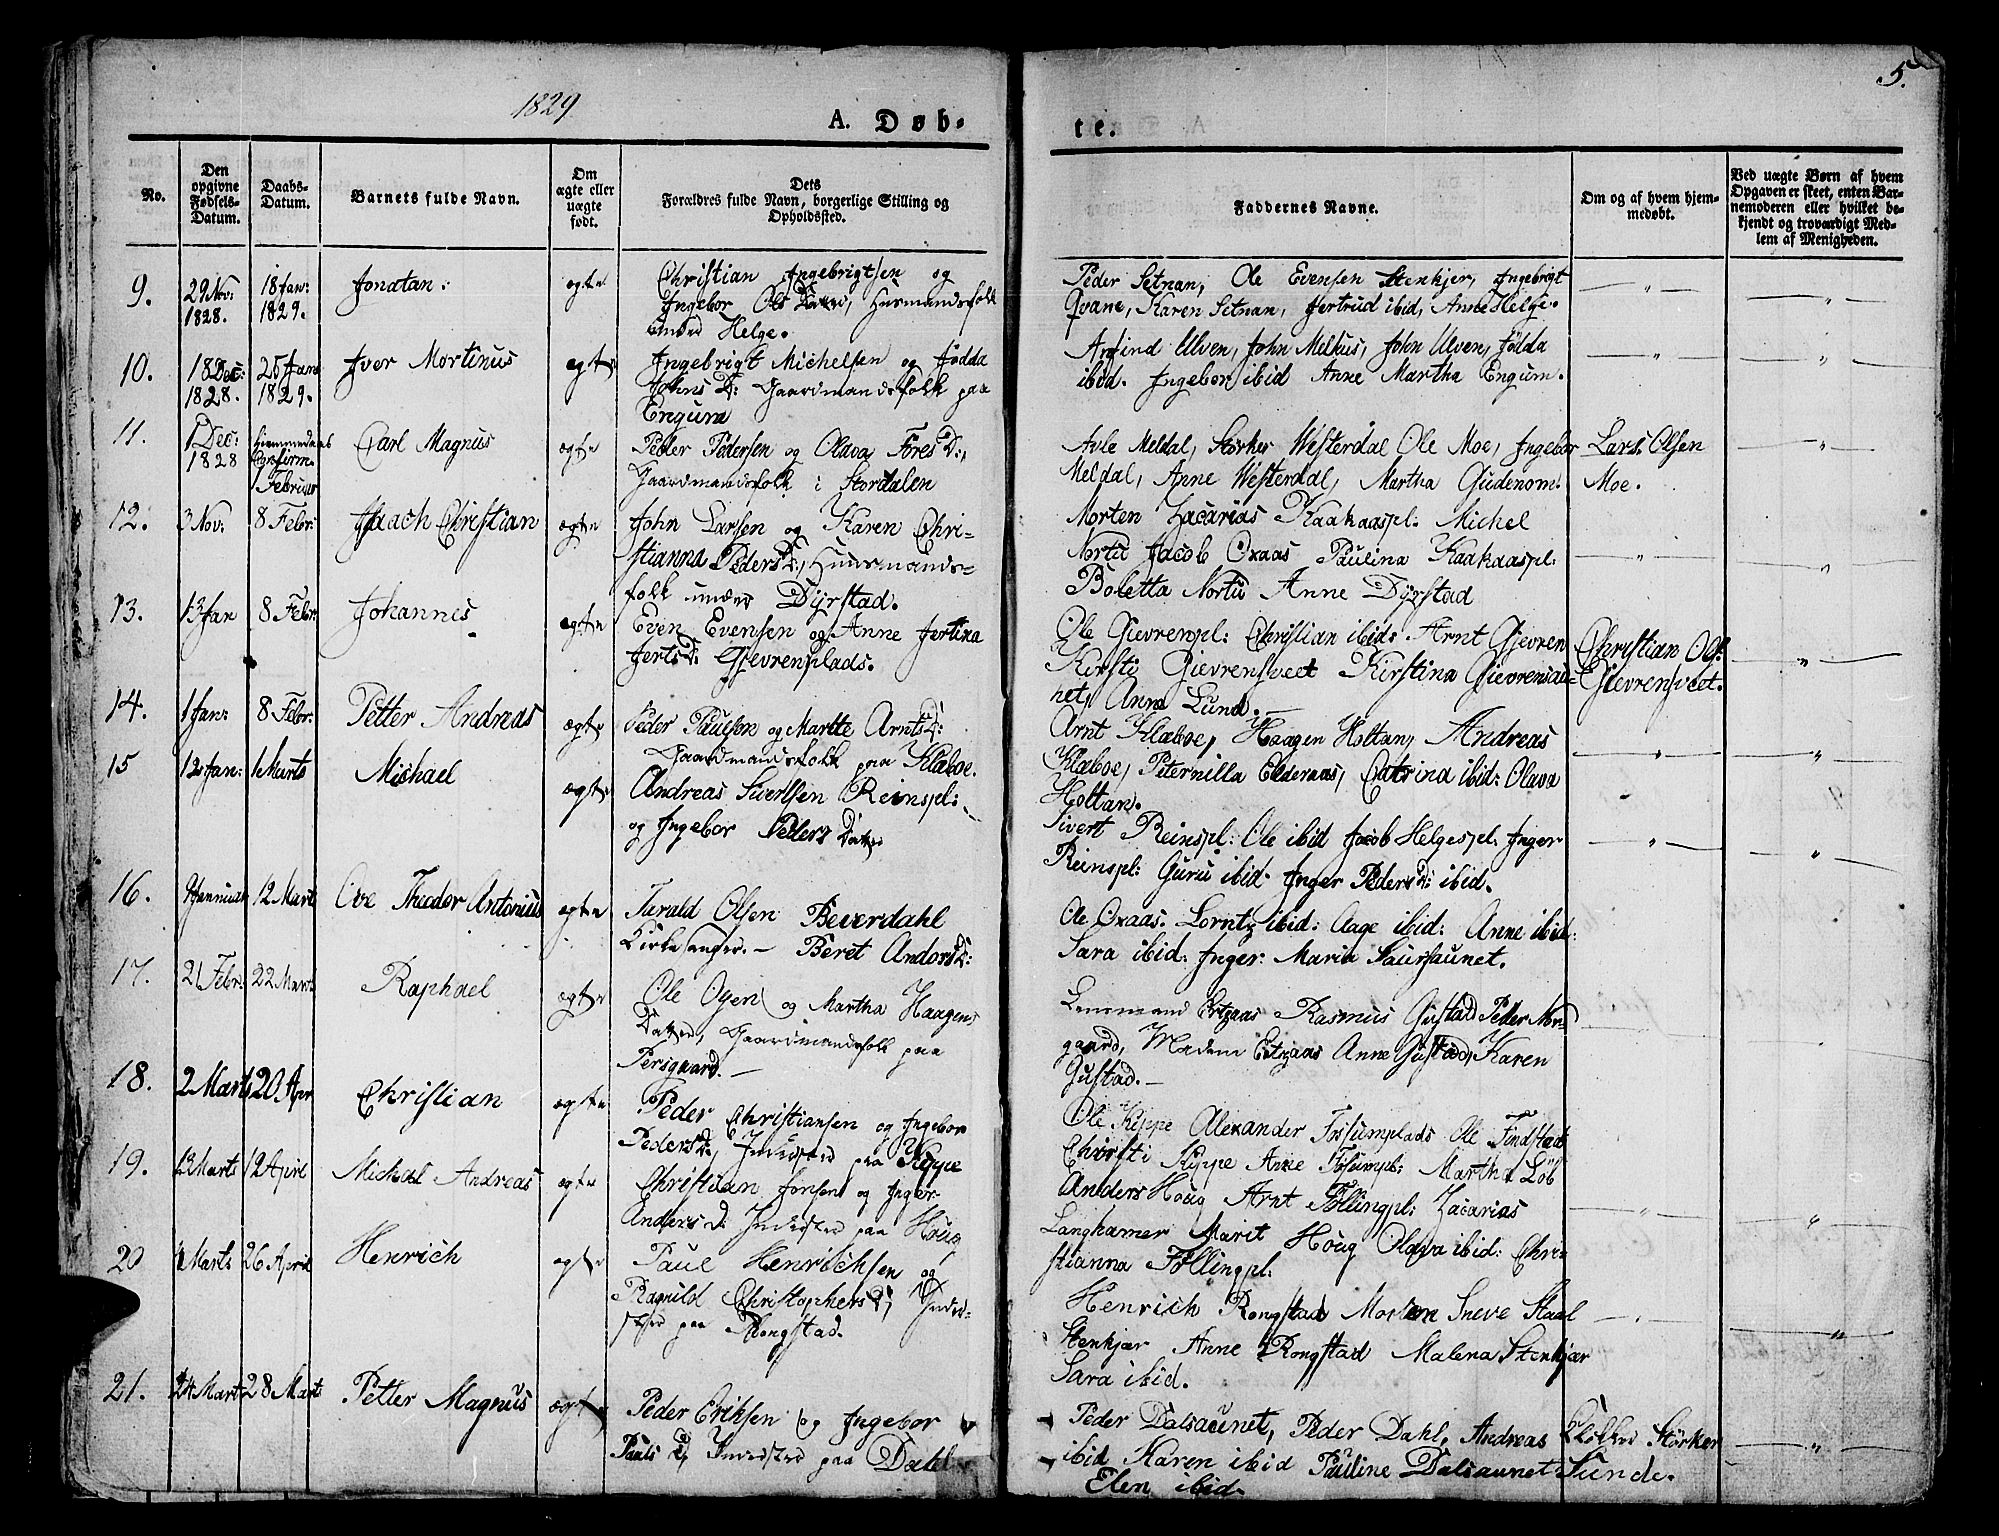 1829
5.
A. Døb-
te.
No.
Den opgivne Fødsels-Datum.
Daabs-Datum.
Barnets fulde Navn.
Om ægte eller uægte født.
Dets
Forældres fulde Navn, borgerlige Stilling og
Opholdssted.
Faddernes Navne.
Om og af hvem hjem-
medøbt.
Ved uægte Børn af hvem
Opgaven er skeet, enten Bar-
nemoderen eller hvilket be-
kjendt og troværdigt Med-
lem af Menigheden.
9. 29 Nov: 1828. 18 Jan: 1829. Jonatan: ægte
Christian Ingebrigtsen og
Ingebor Ols Datter, Huusmandsfolk
under Helge.
Peder Setnan, Ole Evensen Stenkjer, Ingebrigt
Qvane, Karen Setnan, Jertrud ibid, Anne Helge.
10. 18 Dec: 1828. 25 Jan 1829. Iver Mortinus ægte
Ingebrigt Michelsen og Jødda
Johns D: Gaardmandsfolk paa
Engum
Arfind Ulven, John Melhus, John Ulven,
ibid. Ingebor ibid Anne Martha Engum.
11. 1 Dec: 1828 Hiemmedaab Confirm. 1 Februar Carl Magnus ægte
Peder Pedersen og Olava Fores D:,
Gaardmandsfolk i Stordalen
Avle Meldal, Størker Westerdal Ole Moe, Ingebor
Meldal, Anne Westerdal, Martha Gudenom.
Lars Olsen
Moe.
12. 3 Nov: 8 Febr: Isach Christian ægte
John Larsen og Karen Chri-
stianna Peders D:, Huusmands-
folk under Dyrstad.
Morten Zacarias Kaakaaspl: Michel
Nortu Jacob Oxaas Paulina Kaakaaspl:
Boletta Nortu Anne Dyrstad
13. 13 Jan 8 Febr: Johannes ægte
Even Evensen og Anne Jertina
Jerts D: Gievrenplads.
Ole Gievrenpl: Christian ibid: Arnt Gievren
Kirsti Gievrensveet Kirstina Gievrensau-
net, Anne Lund.
Christian Ols:
Gievrensveet.
14. 1 Jan: 8 Febr: Petter Andreas ægte
Peder Paulsen og Martte Arnts D:
Gaardmandsfolk paa Klæboe.
Arnt Klæboe, Haagen Holtan, Andreas
Klæboe, Peternilla Elderaas, Catrina ibid: Olava
Holtan.
15 12 Jan: 1 Marts Michael ægte
Andreas Sivertsen Reinspl:
og Ingebor Peders Datter
Sivert Reinspl: Ole ibid Jacob Helgespl: Inger
Reinspl: Guru ibid. Inger Peders D: ibid.
16. Januar 12 Mart Ove Theodor Antonius ægte
Turald Olsen Beverdahl
Kirkesanger. - Beret Anders D:
Ole Oxaas. Lorntz ibid: Aage ibid: Anne ibid:
Sara ibid: Inger: Maria Saursaunet.
17. 21 Febr: 22 Marts Raphael ægte
Ole Ogen og Martha Haagens
Datter, Gaardmandsfolk paa
Persgaard. -
Lensmand Ertzaas Rasmus Gustad Peder Nor-
gaard, Madem Ertzaas Anne Gustad, Karen
Gustad. -
18. 2 Marts 20 Apr Christian ægte
Peder Christiansen og Ingebor
Peders D:, Inderster paa Kippe
Ole Kippe Alexander Fossumplads Ole Findstad
Christi Kippe Anne Fossumpl: Martha Løb
19. 13 Marts 12 April Michal Andreas ægte
Christian Jonsen og Inger
Anders D: Inderster paa Houg
Anders Houg Arnt Føllingpl: Zacarias
Langhamer Marit Houg Olava ibid: Chri-
stianna Føllingpl:
20 Marts 26 April Henrich ægte
Paul Henrichsen og
Ragnild Christophers D; Inder-
ster paa Rongstad.
Henrich Rongstad Morten Sneve Staal
Stenkjær Anne Rongstad Malena Stenkjær
Sara ibid.
21. 24 Marts 28 Marts Petter Magnus ægte
Peder Eriksen og Ingebor
Pauls D, Inderster paa Dahl
Peder Dalsaunet, Peder Dahl, Andreas
ibid Karen ibid Pauline Dalsaunet
Elen ibid.
Klokker Størker
Sunde.